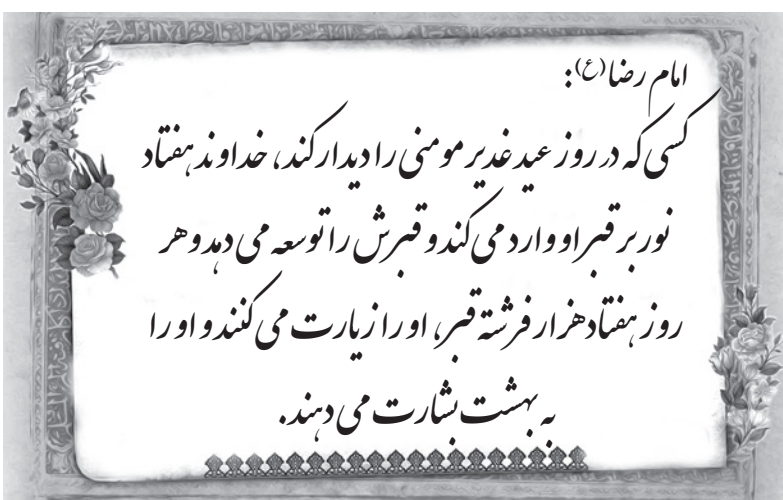 امام رضا(ع):
کسی که در روز عید غدیر مومنی را دیدار کند، خداوند هفتاد
نور بر قبر او وارد می کند و قبرش را توسعه می دهد و هر
روز هفتاد هزار فرشته قبر، او را زیارت می کنند و او را
به بهشت بشارت می دهند.